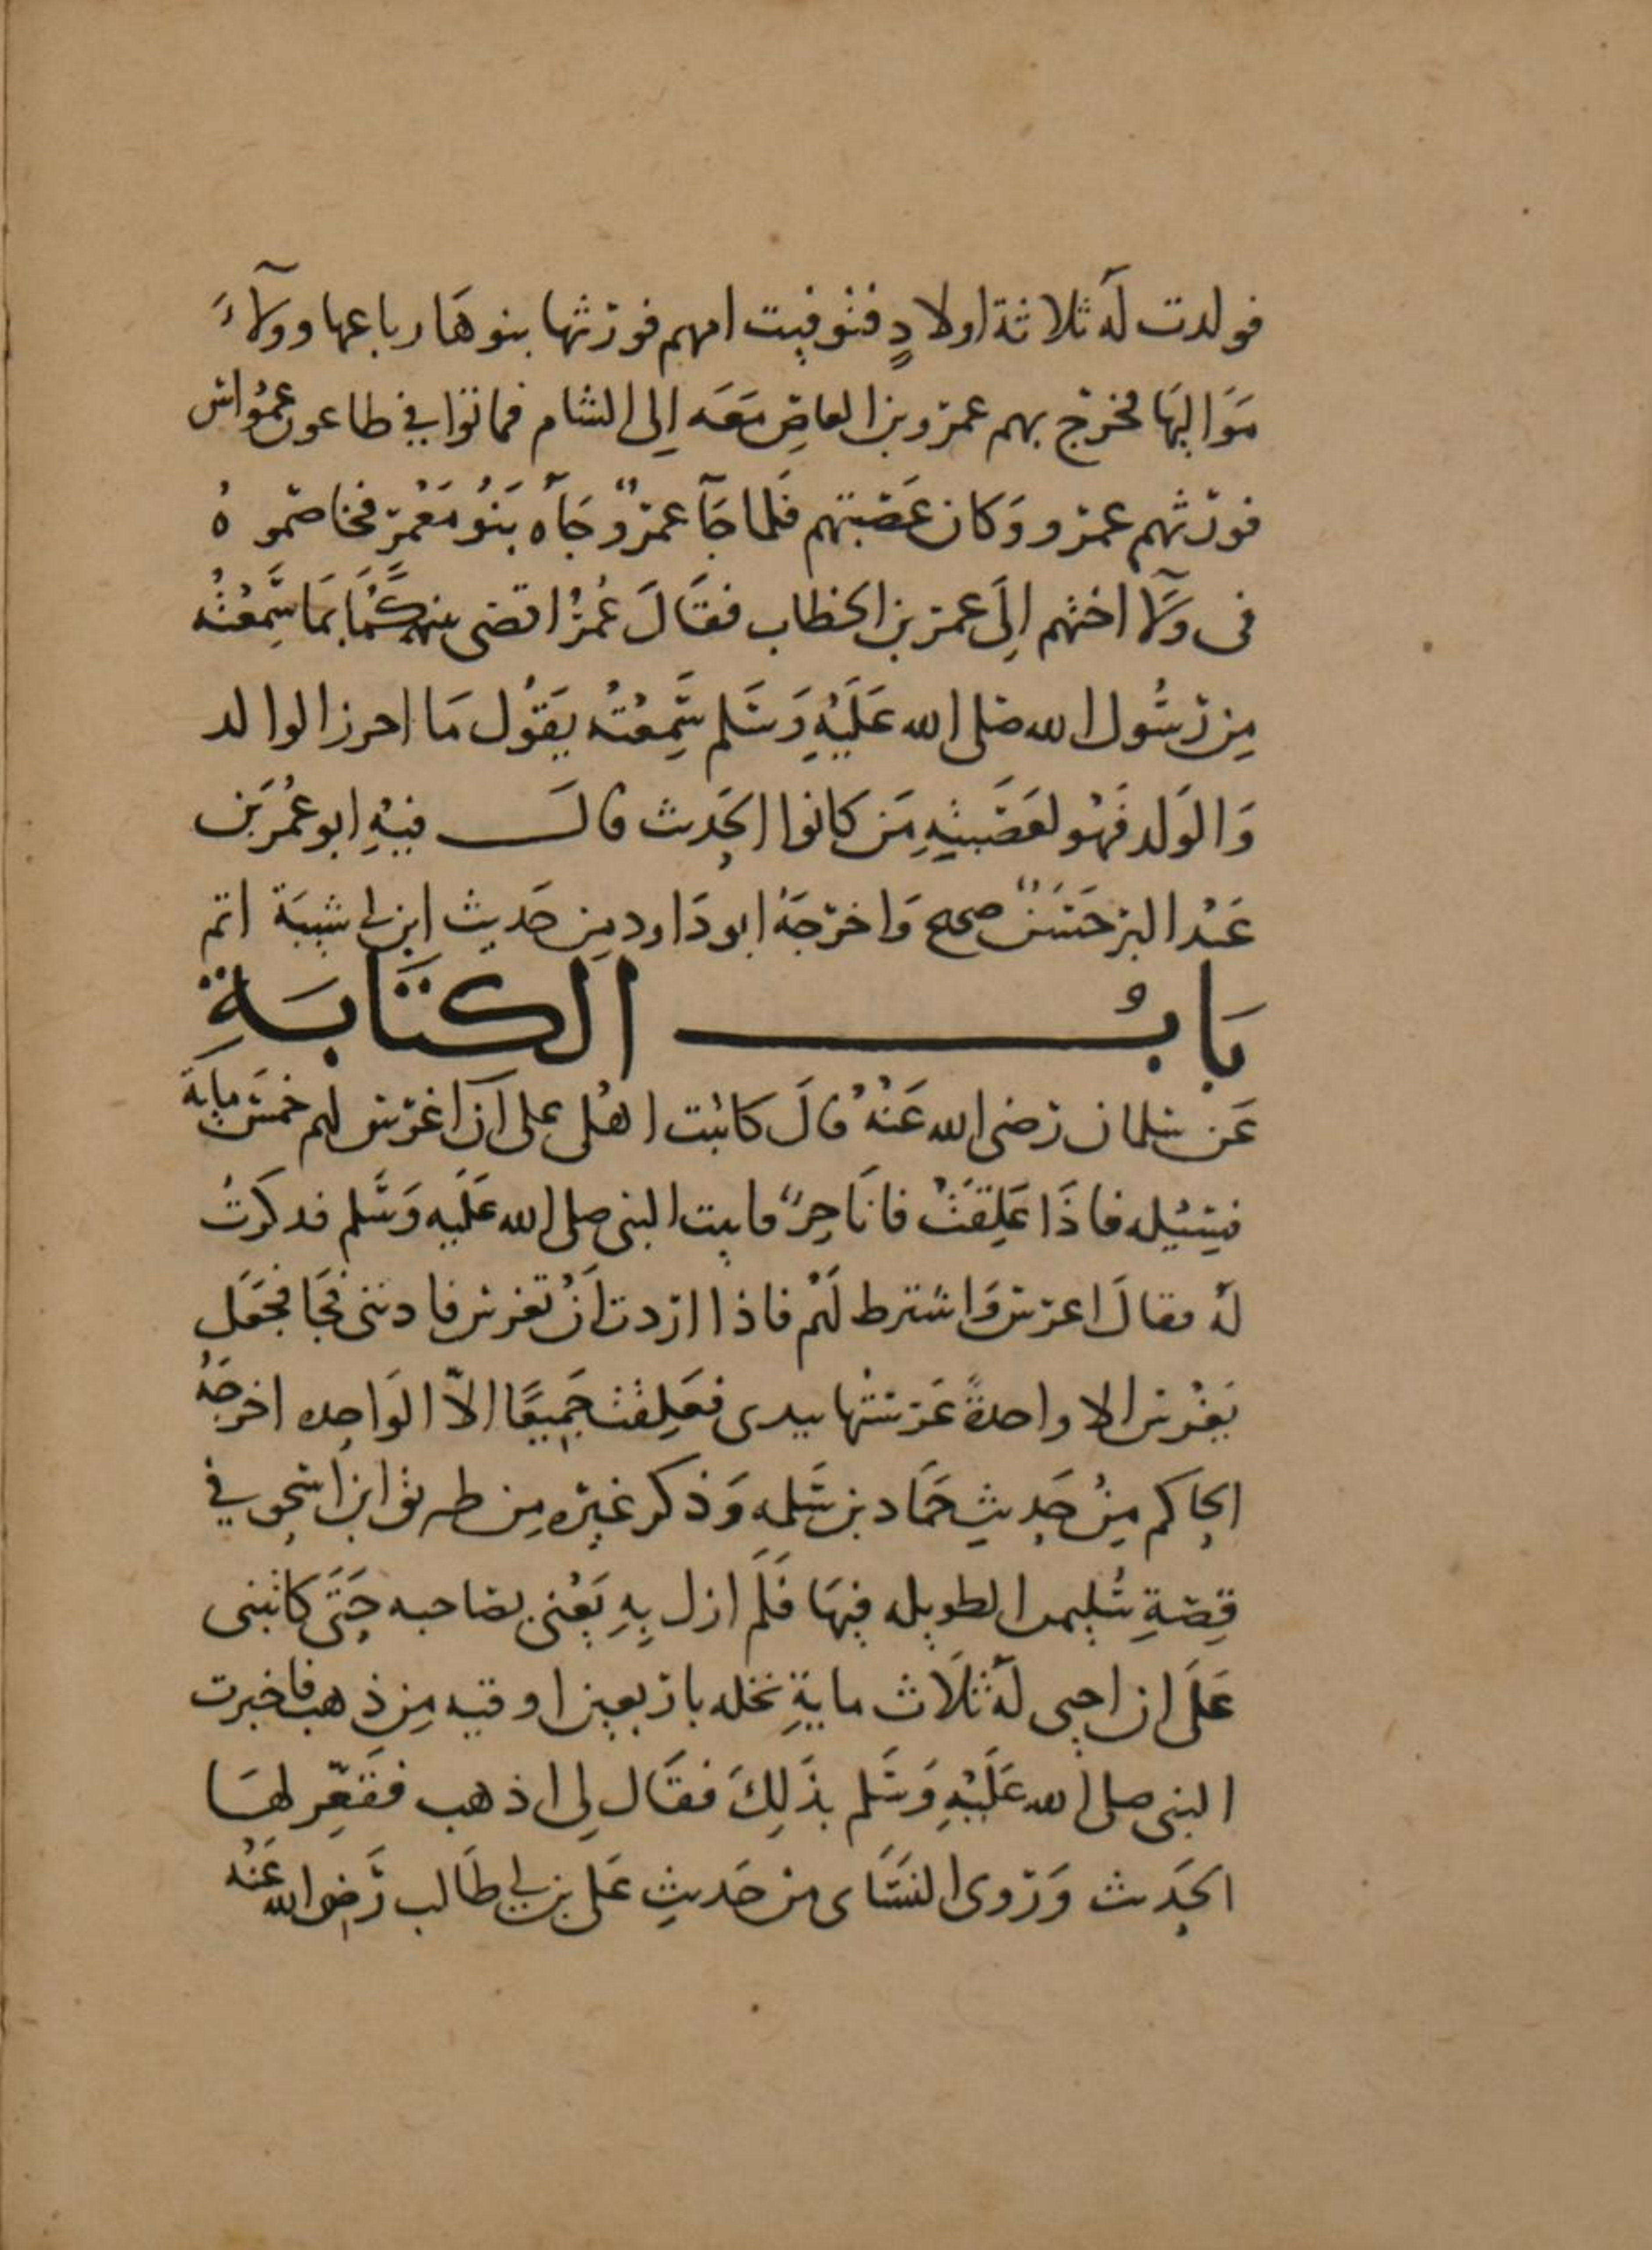 فولدت له ثلاثة اولادٍ فتوفيت امهم فورثها بنوهَا رباعها وولآءَ
مَوَاليهَا فخرج بهم عمرو بن العاصِ مَعَه اِلى الشام فماتوا في طاعون عمَوُاس
فورثهم عمرو وَكان عَصَبتهم فَلما جَآ عمروٌ جَآه بَنُو مَعْمَرٍ فخاصمو هُ
فى وَلآ اختهم اِلَى عمر بن الخطاب فقَالَ عُمَرُ اقضى بينكُمَا بمَا سَمِعْتُه
مِن رسُول الله صلى الله عَلَيْهِ وَسَلم سَمِعْتُه يقَوُل مَا احرز الوالد
وَالوَلد فَهُو لعَصَبتِهِ مَن كانوا الحَدِيث قالــ فيْهِ ابو عُمَر بَن
عَبْد البر حَسَنٌ صحيح وَاخرجَهُ ابو دَاود مِن حَديث ابن ابى شيبَة اتم
بَابُ الكتَابَةِ
عَن سلمان رضى الله عَنْهُ قالَ كاتبت اهْلى على اَن اغرس لهم خمسَ ماية
فسِيْله فاذَا عَلِقَتْ فانَا حِرٌ فاتيت النبى صلى الله عَلَيه وَسَلم فذكرتُ
لهُ فقالَ اغرس وَاشترط لَهُم فاذا اردت اَنْ تغرس فادننى فجَا فجَعَل
يَغْرس الا واحدةً غَرستْها بيدى فعَلِقتْ جَميعًا الاّ الوَاحِده اخرجَهُ
الحاكم مِنْ حَديثِ حَمَاد بن سَلمه وَذكر غيرَه مِن طريق ابن اسحق في
قِصَةِ سُليمن الطويله فيهَا فَلَم ازل بِهِ يَعْنى بصَاحبه حَتَى كاتبنى
عَلَى ان احيى لهُ ثلَاث مايةِ نخله باربعين اوقيه مِن ذهب فاخبرت
النبى صلى الله عَلَيْهِ وَسَلم بذَلِكَ فقَال لِى اذهب فَفقِّر لهَا
الحَدِيث وَرَوى النسَاى من حَديثِ عَلى بن ابى طَالب رَضى الله عَنْهُ